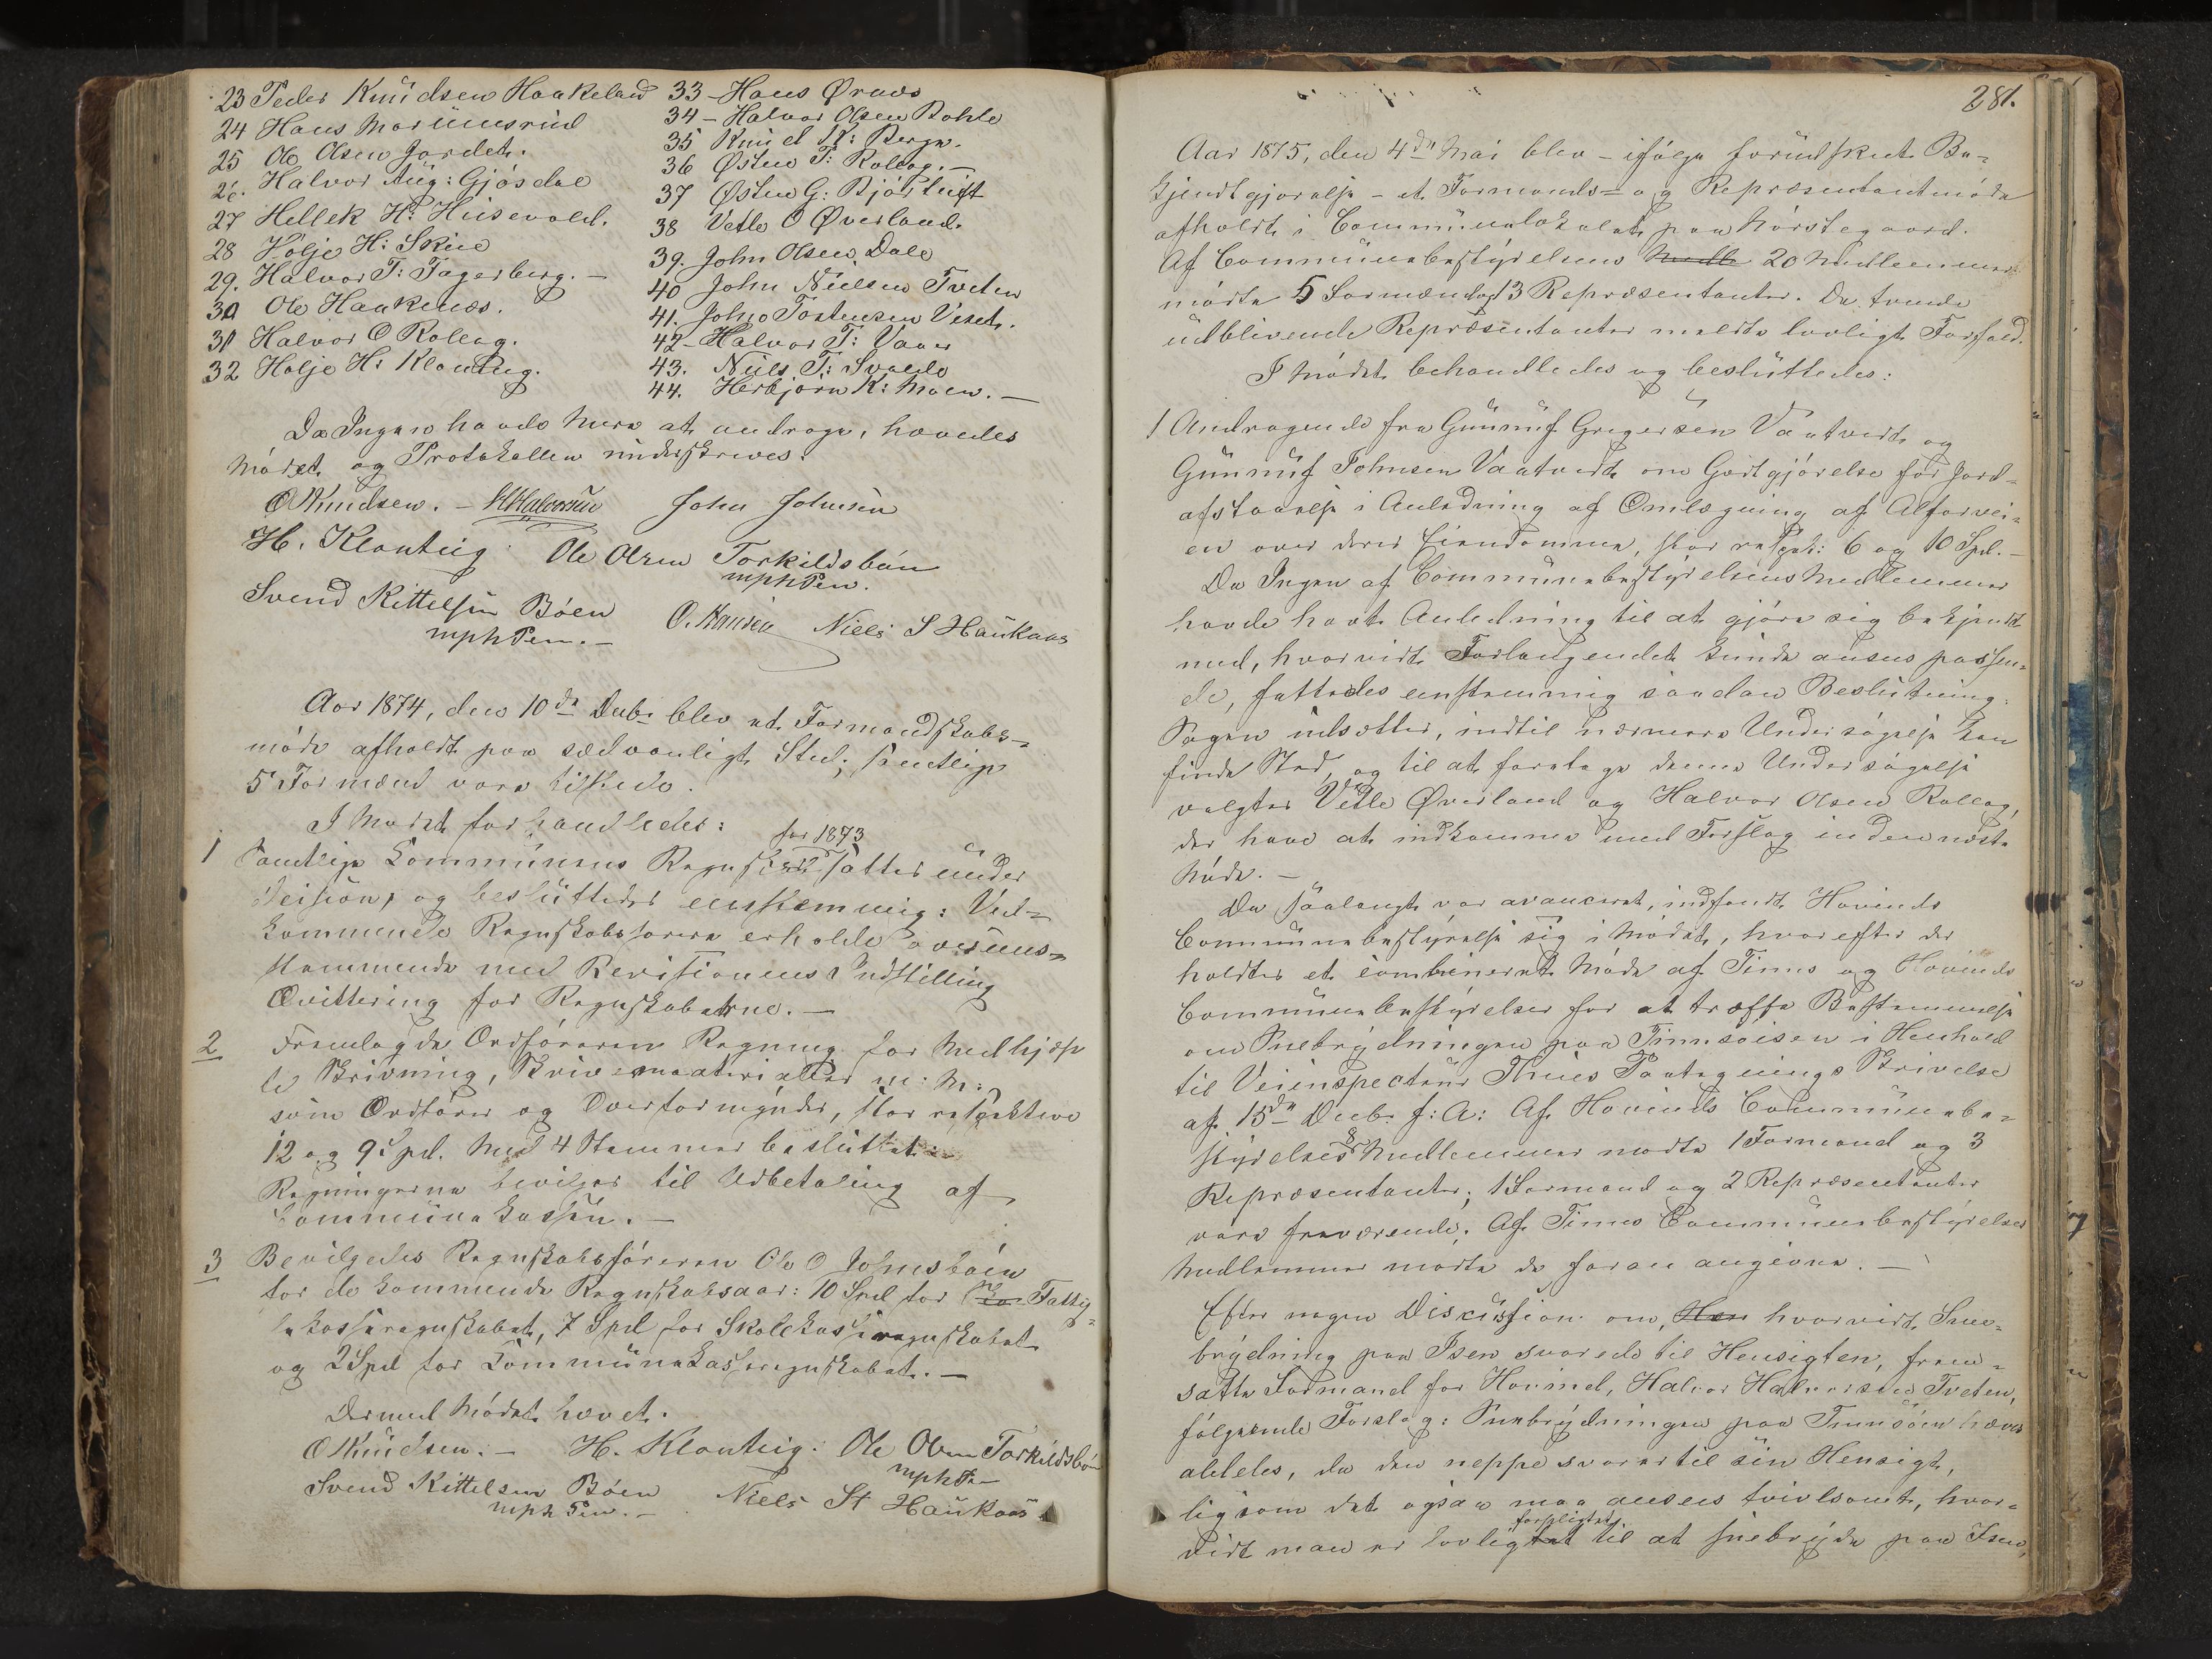 23 Peder Knudsen Haakeland
24 Hans Mariunsrud
25 Ole Olsen Jordet.
26. Halvor Aug: Gjøsdal
27 Hellek H: Husevold.
28 Høljo H: Skue
29. Halvor T: Fagerberg. –
30 Ole Haakenæs.
31 Halvor O Rollag.
32 Høljo H: Klonteig.
33 – Hans Ørnæs
34 – Halvor Olsen Bøhle
35 Knud K: Berge.
36 Østen T: Rollag. –
37 Østen G: Bjørtuft
38 Vetle O Øverland.
39. John Olsen Dale
40 John Nielsen Tveten
41. John Tostensen Viset.
42 – Halvor T: Vaaer
43. Niels T: Svadde
44. Herbjørn K: Moen. –
Da Ingen havde mere at andrage, hævedes
Mødet og Protokollen underskreves.
O Knudsen. – H Halvorsen John Johnsen
H. Klonteig Ole Olsen Torkildsbøen
mph Pen.
Svend Kittelsen Bøen O. Hansen Niels S Haukaas
mph Pen. –
Aar 1874, den 10de Decbr blev et Formandskabs-
møde afholdt paa sædvanligt Sted; samtlige
5 Formænd vare tilstede.
I Mødet forhandledes:
for 1873
1 Samtlige Communens Regnskaber sattes under
Decision, og besluttedes eenstemmig: Ved-
kommende Regnskabsførere erholde overeens-
stemmende med Revisionens Indstilling
Qvittering for Regnskaberne. –
2 Fremlagde Ordføreren Regning for Medhjælp
til Skrivning, Skrivematerialier m: M:
som Ordfører og Overformynder, stor respektive
12 og 9 Spd. Med 4 Stemmer besluttet:
Regningerne bevilges til Udbetaling af
Communekassen. –
3 Bevilgedes Regnskabsføreren Ole O Johnsbøen
for de kommende Regnskabsaar: 10 Spd for Fattig-
kasseregnskabet, 7 Spd for Skolekasseregnskabet
og 2 Spd for Communekasseregnskabet. –
Dermed Mødet hævet.
O Knudsen. – H. Klonteig. Ole Olsen Torkildsbøen
mph Pn –
Svend Kittelsen Bøen Niels St Haukaas
mph Pen. –
281.
Aar 1875, den 4de Mai blev – ifølge forudskeet Be-
kjendtgjørelse – et Formands- og Repræsentantmøde
afholdt i Communelokalet paa Mørstegaard.
Af Communebestyrelsens Medle 20 Medlemmer
mødte 5 Formænd og 13 Repræsentanter. De tvende
udblivende Repræsentanter meldte lovligt Forfald.
I Mødet behandledes og besluttedes:
1 Andragende fra Gunnuf Gregersen Vaatveit og
Gunnuf Johnsen Vaatveit om Godtgjørelse for Jord-
afstaaelse i Anledning af Omlægning af Alfarvei-
en over deres Eiendomme, stor respekt: 6 og 10 Spd. –
Da Ingen af Communebestyrelsens Medlemmer
havde havt Anledning til at gjøre sig bekjendt
med, hvorvidt Forlangendet kunde ansees passen-
de, fattedes enstemmig saadan Beslutning:
Sagen udsættes, indtil nærmere Undersøgelse kan
finde Sted, og til at foretage denne Undersøgelse
valgtes Vetle Øverland og Halvor Olsen Rollag,
der have at indkomme med Forslag inden næste
Møde. –
Da saalangt var avanceret, indfandt Hovinds
Communebestyrelse sig i Mødet, hvorefter der
holdtes et combineret Møde af Tinns og Hovinds
Communebestyrelser for at træffe Bestemmelse
om Snebrydningen paa Tinnsøisen i Henhold
til Veiinspecteur Thues Paategnings Skrivelse
af 15de Decbr f: A: Af Hovinds Communebe-
styrelses 8 Medlemmer mødte 1 Formand og 3
Repræsentanter; 1 Formand og 2 Repræsentanter
vare fraværende; Af Tinns Communebestyrelses
Medlemmer mødte de foran angivne. –
Efter nogen Discussion om, Hen hvorvidt Snee-
brydning paa Isen svarede til Hensigten, frem-
satte Formand for Hovind, Halvor Halvorsen Tveten,
følgende Forslag: Snebrydningen paa Tinnsøen hæves
aldeles, da den neppe svarer til sin Hensigt,
ligsom det ogsaa maa ansees tvivlsomt, hvor-
forpligtet
vidt man er lovlig til at snebryde paa Isen,